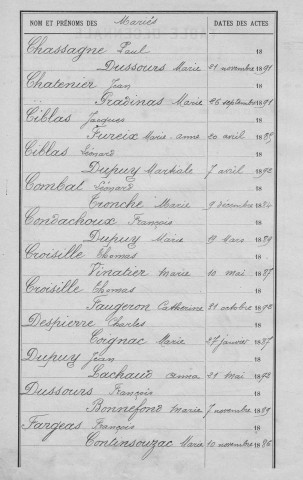 NOM ET PRÉNOMS DES Mariés DATES DES ACTES
Chassagne Paul 18
Dussours Marie 21 novembre 1891
Chatenier Jean 18
Gradinas Marie 26 septembre 1891
Ciblas Jacques 18
Fureix Marie-anne 20 avril 1885
Ciblas Léonard 18
Dupuy Martiale 7 avril 1892
Combal Léonard 18
Tronche Marie 9 décembre 1884
Condachoux François 18
Dupuy Marie 19 Mars 1889
Croisille Thomas 18
Vinatier Marie 10 mai 1887
Croisille Thomas 18
Faugeron Catherine 21 octobre 1892
Despierre Charles 18
Coignac Marie 27 janvier 1887
Dupuy Jean 18
Lachaud Anna 21 Mai 1892
Dussours François 18
Bonnefond Marie 7 novembre 1889
Fargeas François 18
Continsouzac Marie 10 novembre 1886